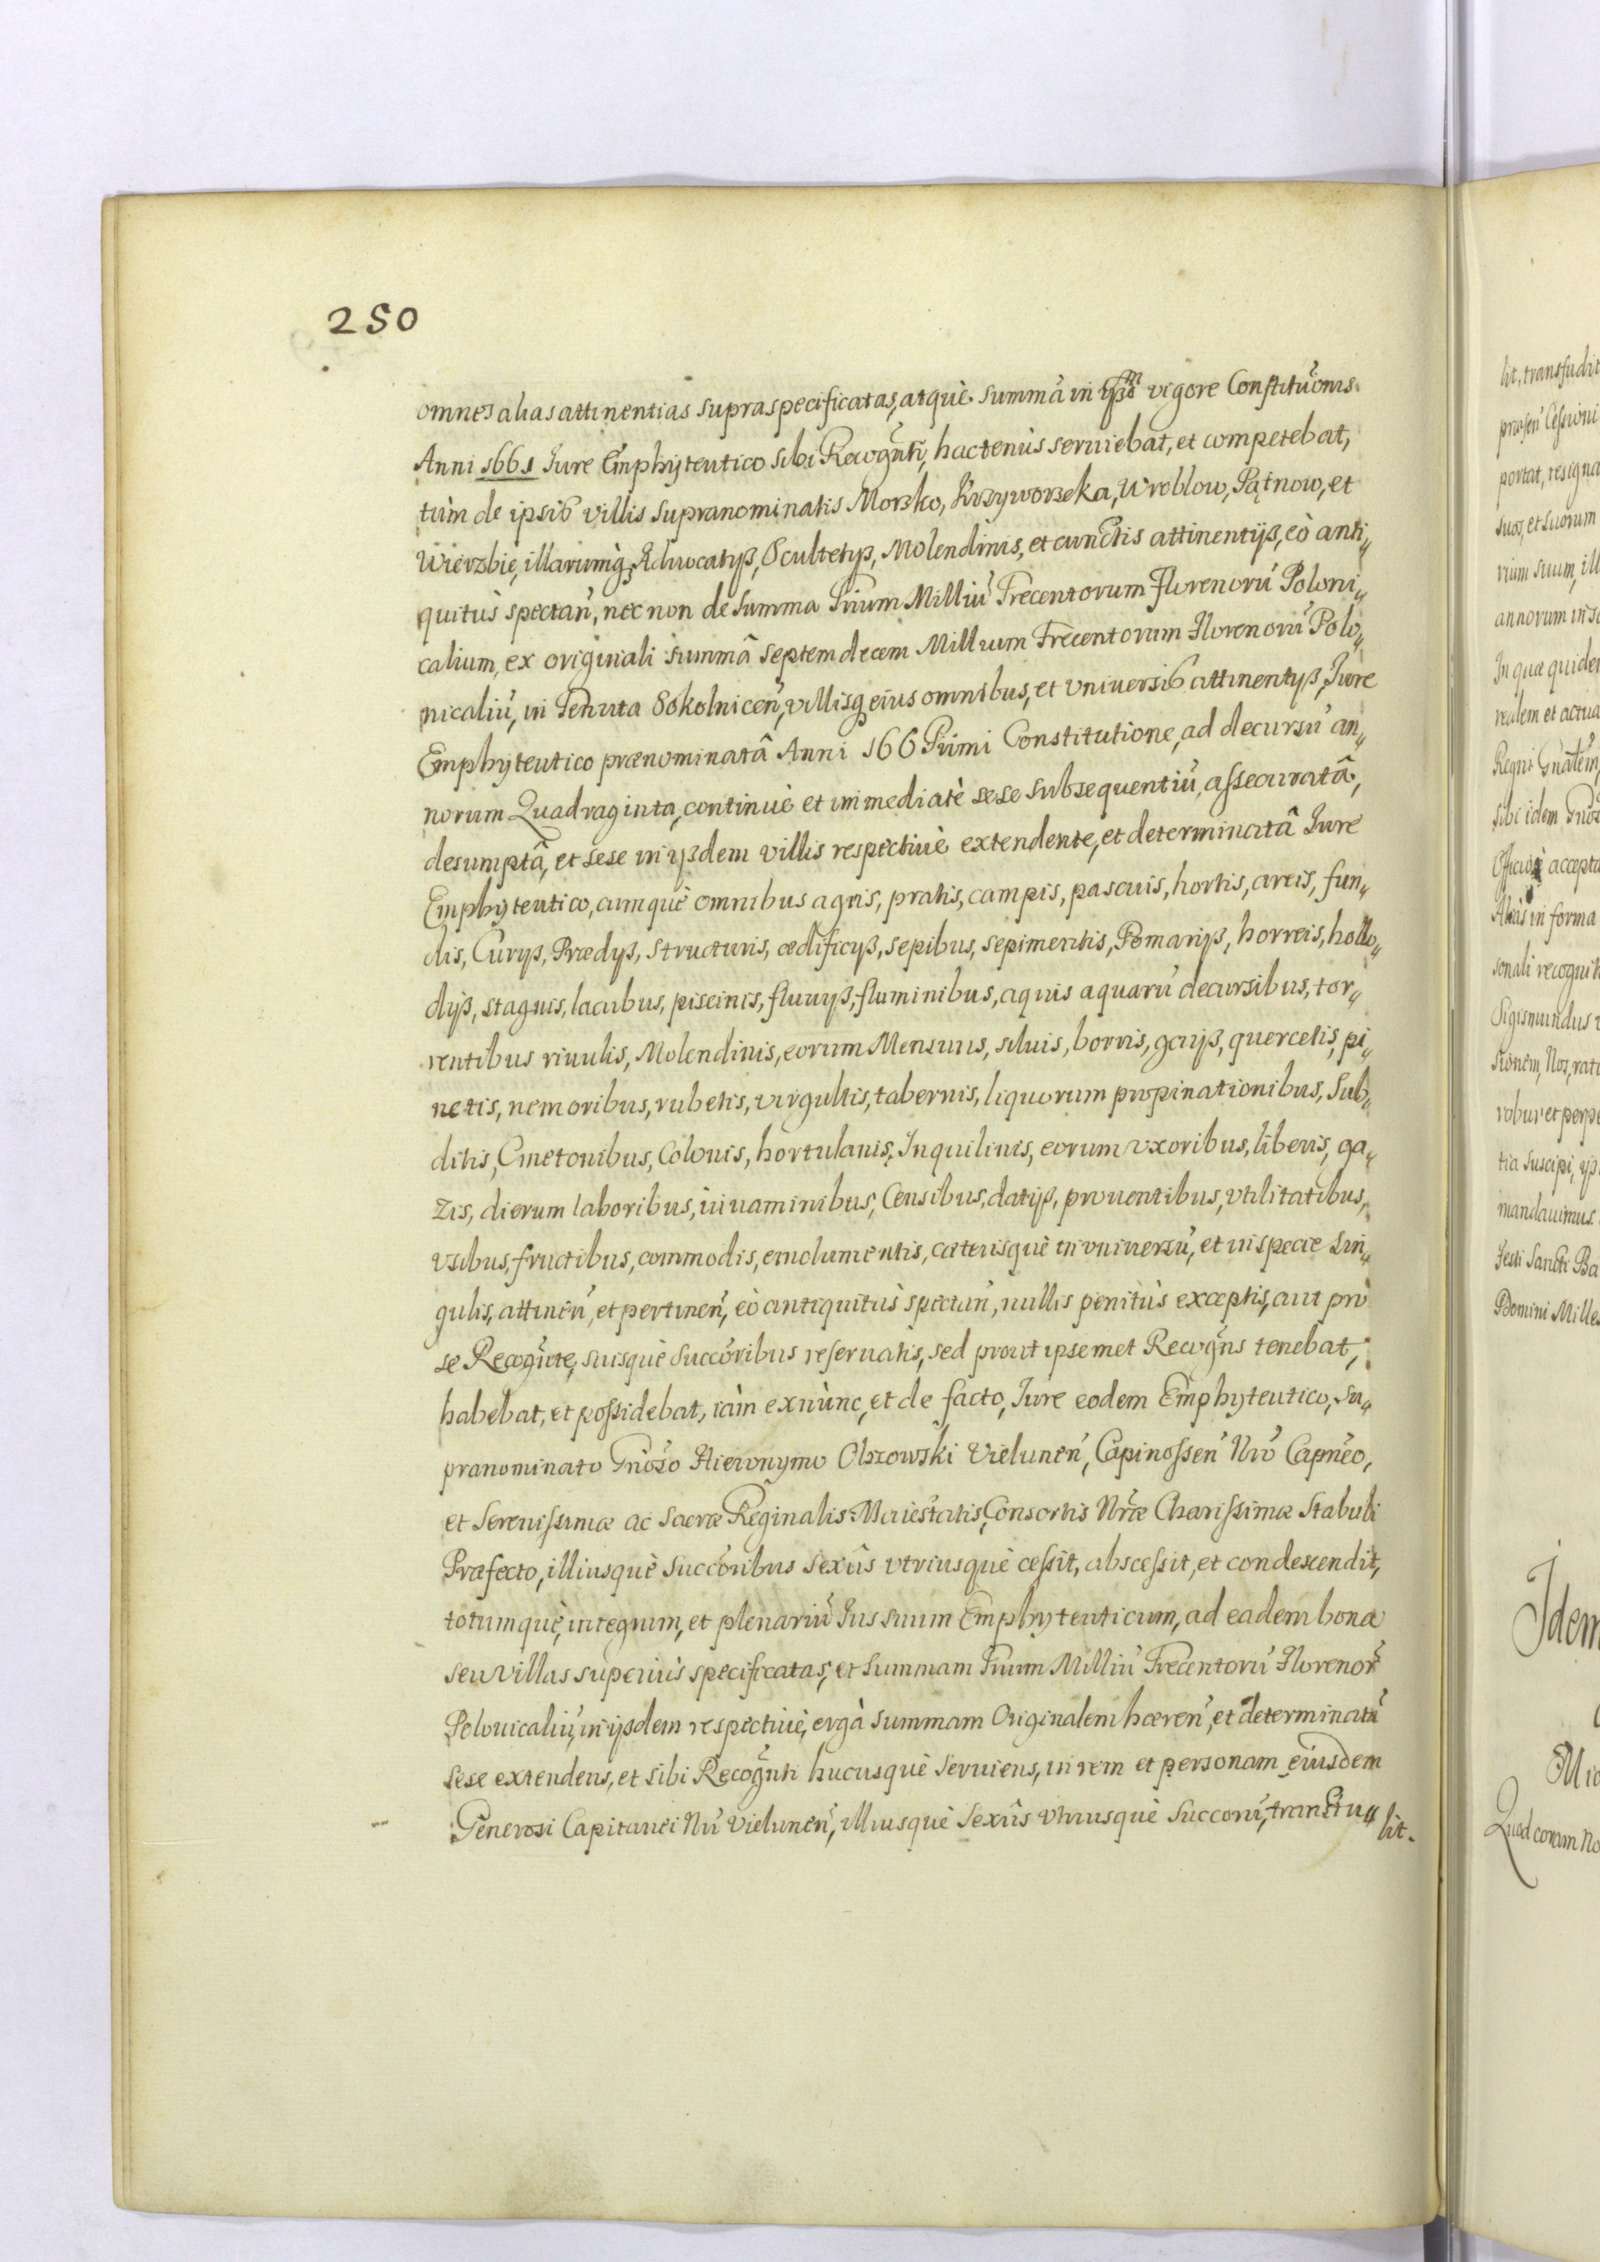 250
omnes alias attinentias supraspecificatas, atquè summã in ijsdem vigore Constitũonis
Anni 1661 Iure Emphyteutico sibi Recogñti, hactenùs seruiebat, et competebat,
tùm de ipsis villis supranominatis Morsko, Krzyworzeka, Wroblow, Pątnow, et
Wierzbie, illarumq; Aduocatijs, Scultetijs, Molendinis, et cunctis attinentijs, eò anti„
quitùs spectañ, nec non de summa Trium Milliũ Trecentorum Florenorũ Poloni„
calium, ex originali summâ septemdecem Millium Trecentorum Florenorũ Polo„
nicaliũ, in Tenuta Sokolniceñ, villisq; eius omnibus, et vniversis attinentijs, Iure
Emphyteutico prænominatâ Anni 166 Primi Constitutione, ad decursũ an„
norum Quadraginta, continuè et immediatè sese subsequentiũ, assecuratâ,
desumptâ, et sese in ijsdem villis respectiuè extendente, et determinatâ Iure
Emphyteutico, cumquè omnibus agris, pratis, campis, pascuis, hortis, areis, fun„
dis, Curijs, Prædijs, structuris, ædificijs, sepibus, sepimentis, Pomarijs, horreis, hallo„
dijs, stagnis, lacubus, piscinis, fluuijs, fluminibus, aquis aquarũ decursibus, tor„
rentibus riuulis, Molendinis, eorum Mensuris, siluis, borris, gaijs, quercetis, pi„
netis, nemoribus, rubetis, virgultis, tabernis, liquorum propinationibus, Sub„
ditis, Cmetonibus, Colonis, hortulanis, Inquilinis, eorum vxoribus, liberis, ga„
zis, dierum laboribus, iuuaminibus, Censibus, datijs, prouentibus, vtilitatibus,
vsibus, fructibus, commodis, emolumentis, cæterisquè in vniuersũ, et in specie sin„
gulis, attineñ, et pertineñ, eò antiquitùs spectañ, nullis penitùs exceptis, aut prò
se Recogñte, suisquè Succõribus reseruatis, sed prout ipsemet Recogñs tenebat,
habebat, et possidebat, iàm exnùnc, et de facto, Iure eodem Emphyteutico, su„
pranominato Gnõso Hieronymo Olszowski Vieluneñ, Capinosseñ Nrõ Capneo,
et Serenissimæ ac Sacræ Reginalis Maiestatis, Consortis Nræ Charissimæ Stabuli
Præfecto, illiusquè Succõribus sexûs vtriusquè cessit, abscessit, et condescendit,
totumquè, integrum, et plenariũ Ius suum Emphyteuticum, ad eadem bona
seu villas superiùs specificatas, et summam Trium Milliũ Trecentorũ Florenor̃
Polonicaliũ, in ijsdem respectiuè, ergà summam Originalem hæreñ, et determinatã
sese extendens, et sibi Recogñti hucusquè seruiens, in rem et personam eiusdem
Generosi Capitanei Nri Vieluneñ, illiusquè sexûs vtriusquè Succorũ, transtu„ lit.
lit, transfudit
præseñ Cessioni
portat, resigna
suos, et suorum
rium suum, ill
annorum in
In quæ quide
realem et actua
Regni Gnãlem
sibi idem Gnõs
accepta
Aliàs in forma
sonali recognit
Sigismundus
sionem, Nos, rati
robur et perpe
tia suscipi, ijs
mandauimus.
Festi Sancti Ba
Domini Milles
Idem
Quod coram No